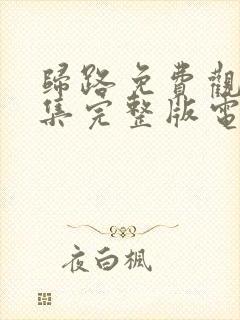 歸路免費觀
集完整版電
夜白楓